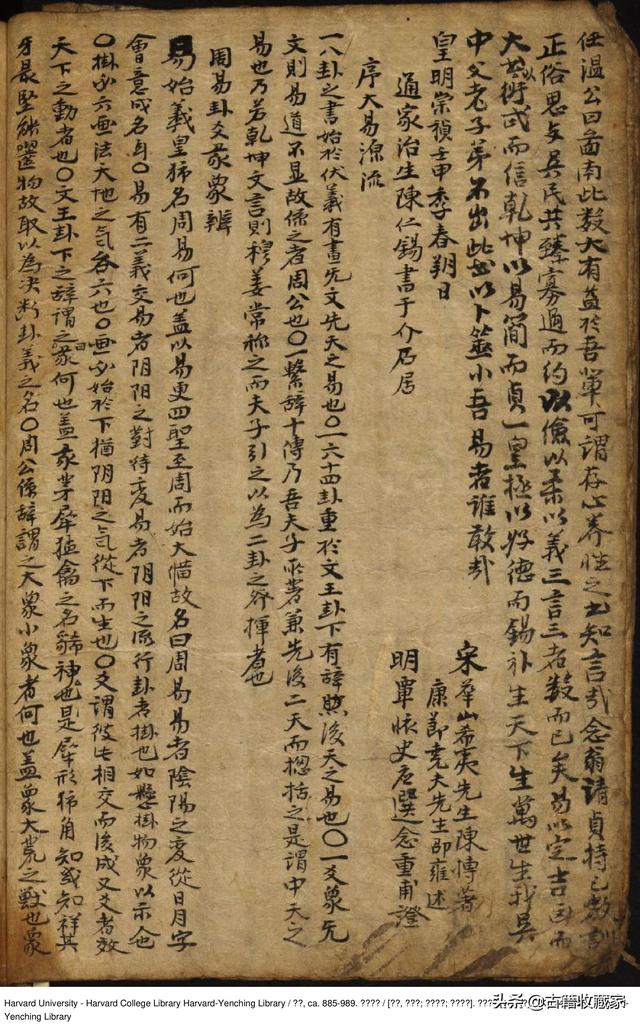 任溫公曰面南此数大有益於吾軰可謂存心养性之士知言哉念翁請貞持已教
正俗思与吳民共臻寡過而約以儉以柔以義三言三者数而已矣易以定吉凶而
大衍式而信乾坤以易簡而貞一皇極以好德而錫补生天下生萬世生我吳
中父老子弟不出此以卜筮小吾易者誰敢哉
皇明崇禎壬申季春朔日
通家治生陳仁錫書于介石居
宋華山希夷先生陳慱著
康節尭夫先生邵雍述
明覃懷史应選念重甫證
序大易源流
一八卦之書始於伏義有畫无文先天之易也〇一六十四卦重於文王卦下有辞然後天之易也〇一爻象无
文則易道不显故係之者周公也〇一繫辞十傳乃吾夫子所著兼先後二天而揔括之是謂中天之
易也乃若乾坤文言則穆姜常称之而夫子引之以為二卦之發揮者也
周易卦爻彖象辨
易始義皇獨名周易何也盖以易更四聖至周而始大俻故名曰周易易者陰陽之变從日月字
會意成名〇易有二義交易者阴阳之對待变易者阴阳之流行卦者掛也如懸掛物象以示人也
〇掛必六画法天地之气各六也〇画必始於下猶阴阳之气從下而生也〇爻謂彼此相交而後成又爻者效
天下之動者也〇文王卦下之辞謂之彖何也盖彖者犀猪禽之名神也是犀形獨角知幾知祥其
牙最堅能囓物故取以為决断卦義之名〇周公係辞謂之大象小象者何也盖象大荒之獸也象
Harvard University - Harvard College Library Harvard-Yenching Library / ??, ca. 885-989. ???? / [??, ???; ????; ????]. ???
Yenching Library
头条@古籍收藏家